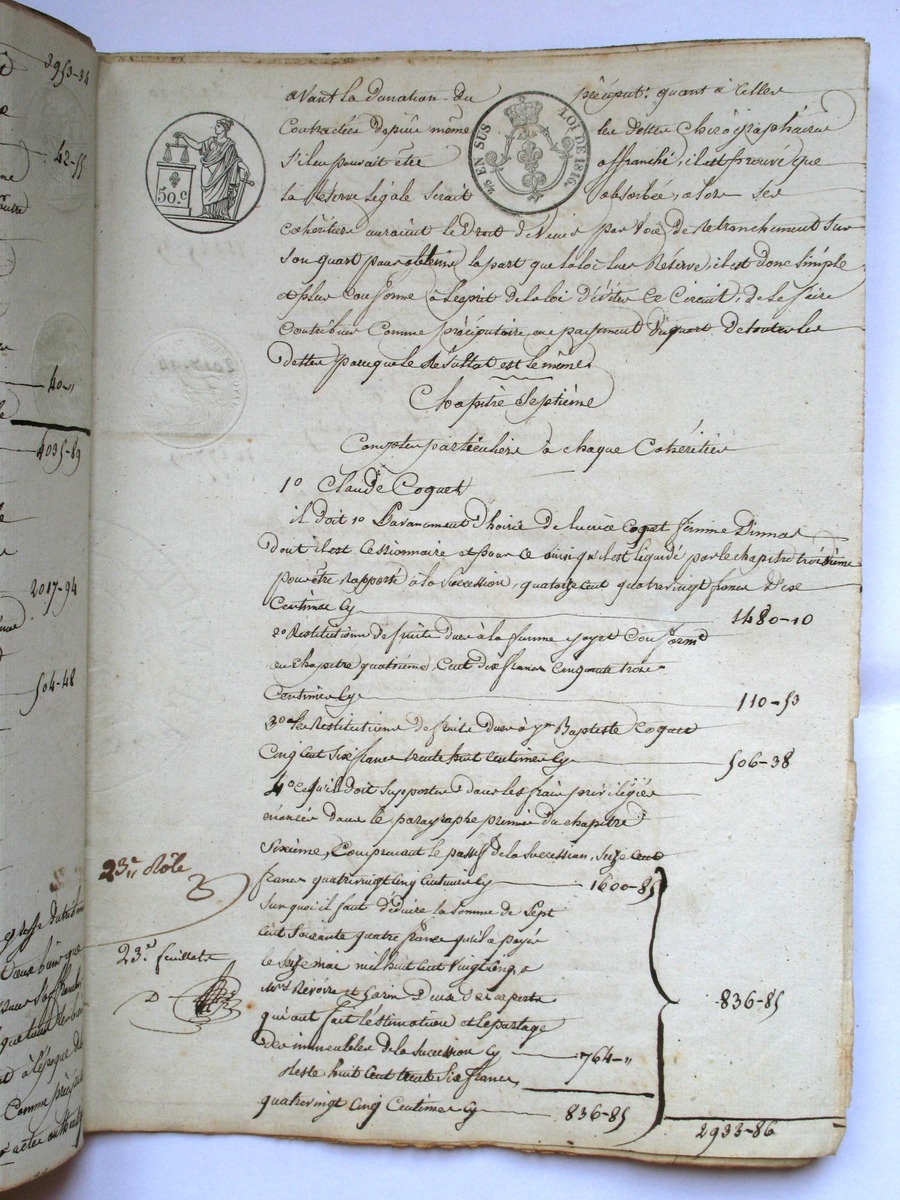 avant la donation du préciput. quant à Celles
Contractées depuis même les dettes Chirographaires
s'il en pouvait être affranchi, il est prouvé que
la Réserve légale serait absorbée, alors ses
cohéritiers auraient le Droit de Venir par Voie de retranchement sur
son quart pour obtenir la part que la loi leur Réserve, il est donc simple
et plus conforme à l'esprit de la loi d'éviter Ce Circuit, de le faire
Contribuer Comme préciputaire au payement du quart de toutes les
dettes parceque le Résultat est le même.
50.c
25 EN SUS
LOI DE 1816.
Chapitre Septième
Comptes particuliers à chaque Cohéritier
1° Claude Coquet
il doit 1° l'avancement d'hoirie de Coquet femme
Dont il est Cessionnaire et pour Ce ainsi qu'il est liquidé par le chapitre troisième
pour être rapporté à la Succession, quatorze cent quatrevingt francs dix
Centimes Cy 1480-10
2° Restitutions de fruits dues à la femme Conformt
au chapitre quatrième, Cent dix francs Cinquante trois
Centimes Cy 110-53
3° les Restitutions de fruits dues à Baptiste Coquet
Cinq cent six francs trente huit Centimes Cy 506-38
4° Ce qu'il doit supporter dans les frais privilégiés
énoncés dans le paragraphe premier du chapitre
Sixième, Comprenant le passif de la Succession, Seize Cent
francs quatrevingt Cinq Centimes Cy 1600-85
23e Rôle
Sur quoi il faut déduire la somme de Sept
Cent Soixante quatre francs qu'il a payée
23e feuillet
le Seize mai mil huit Cent Vingt Cinq, à
Mrs Revoire et Garin Deux des experts
qui ont fait l'estimation et le partage
836-85
Des immeubles de la Succession Cy 764-"
Reste huit Cent trente Six francs
quatrevingt Cinq Centimes Cy 836-85
2933-86
3953-34
42-55
40-"
4035-89
2017-94
504-48